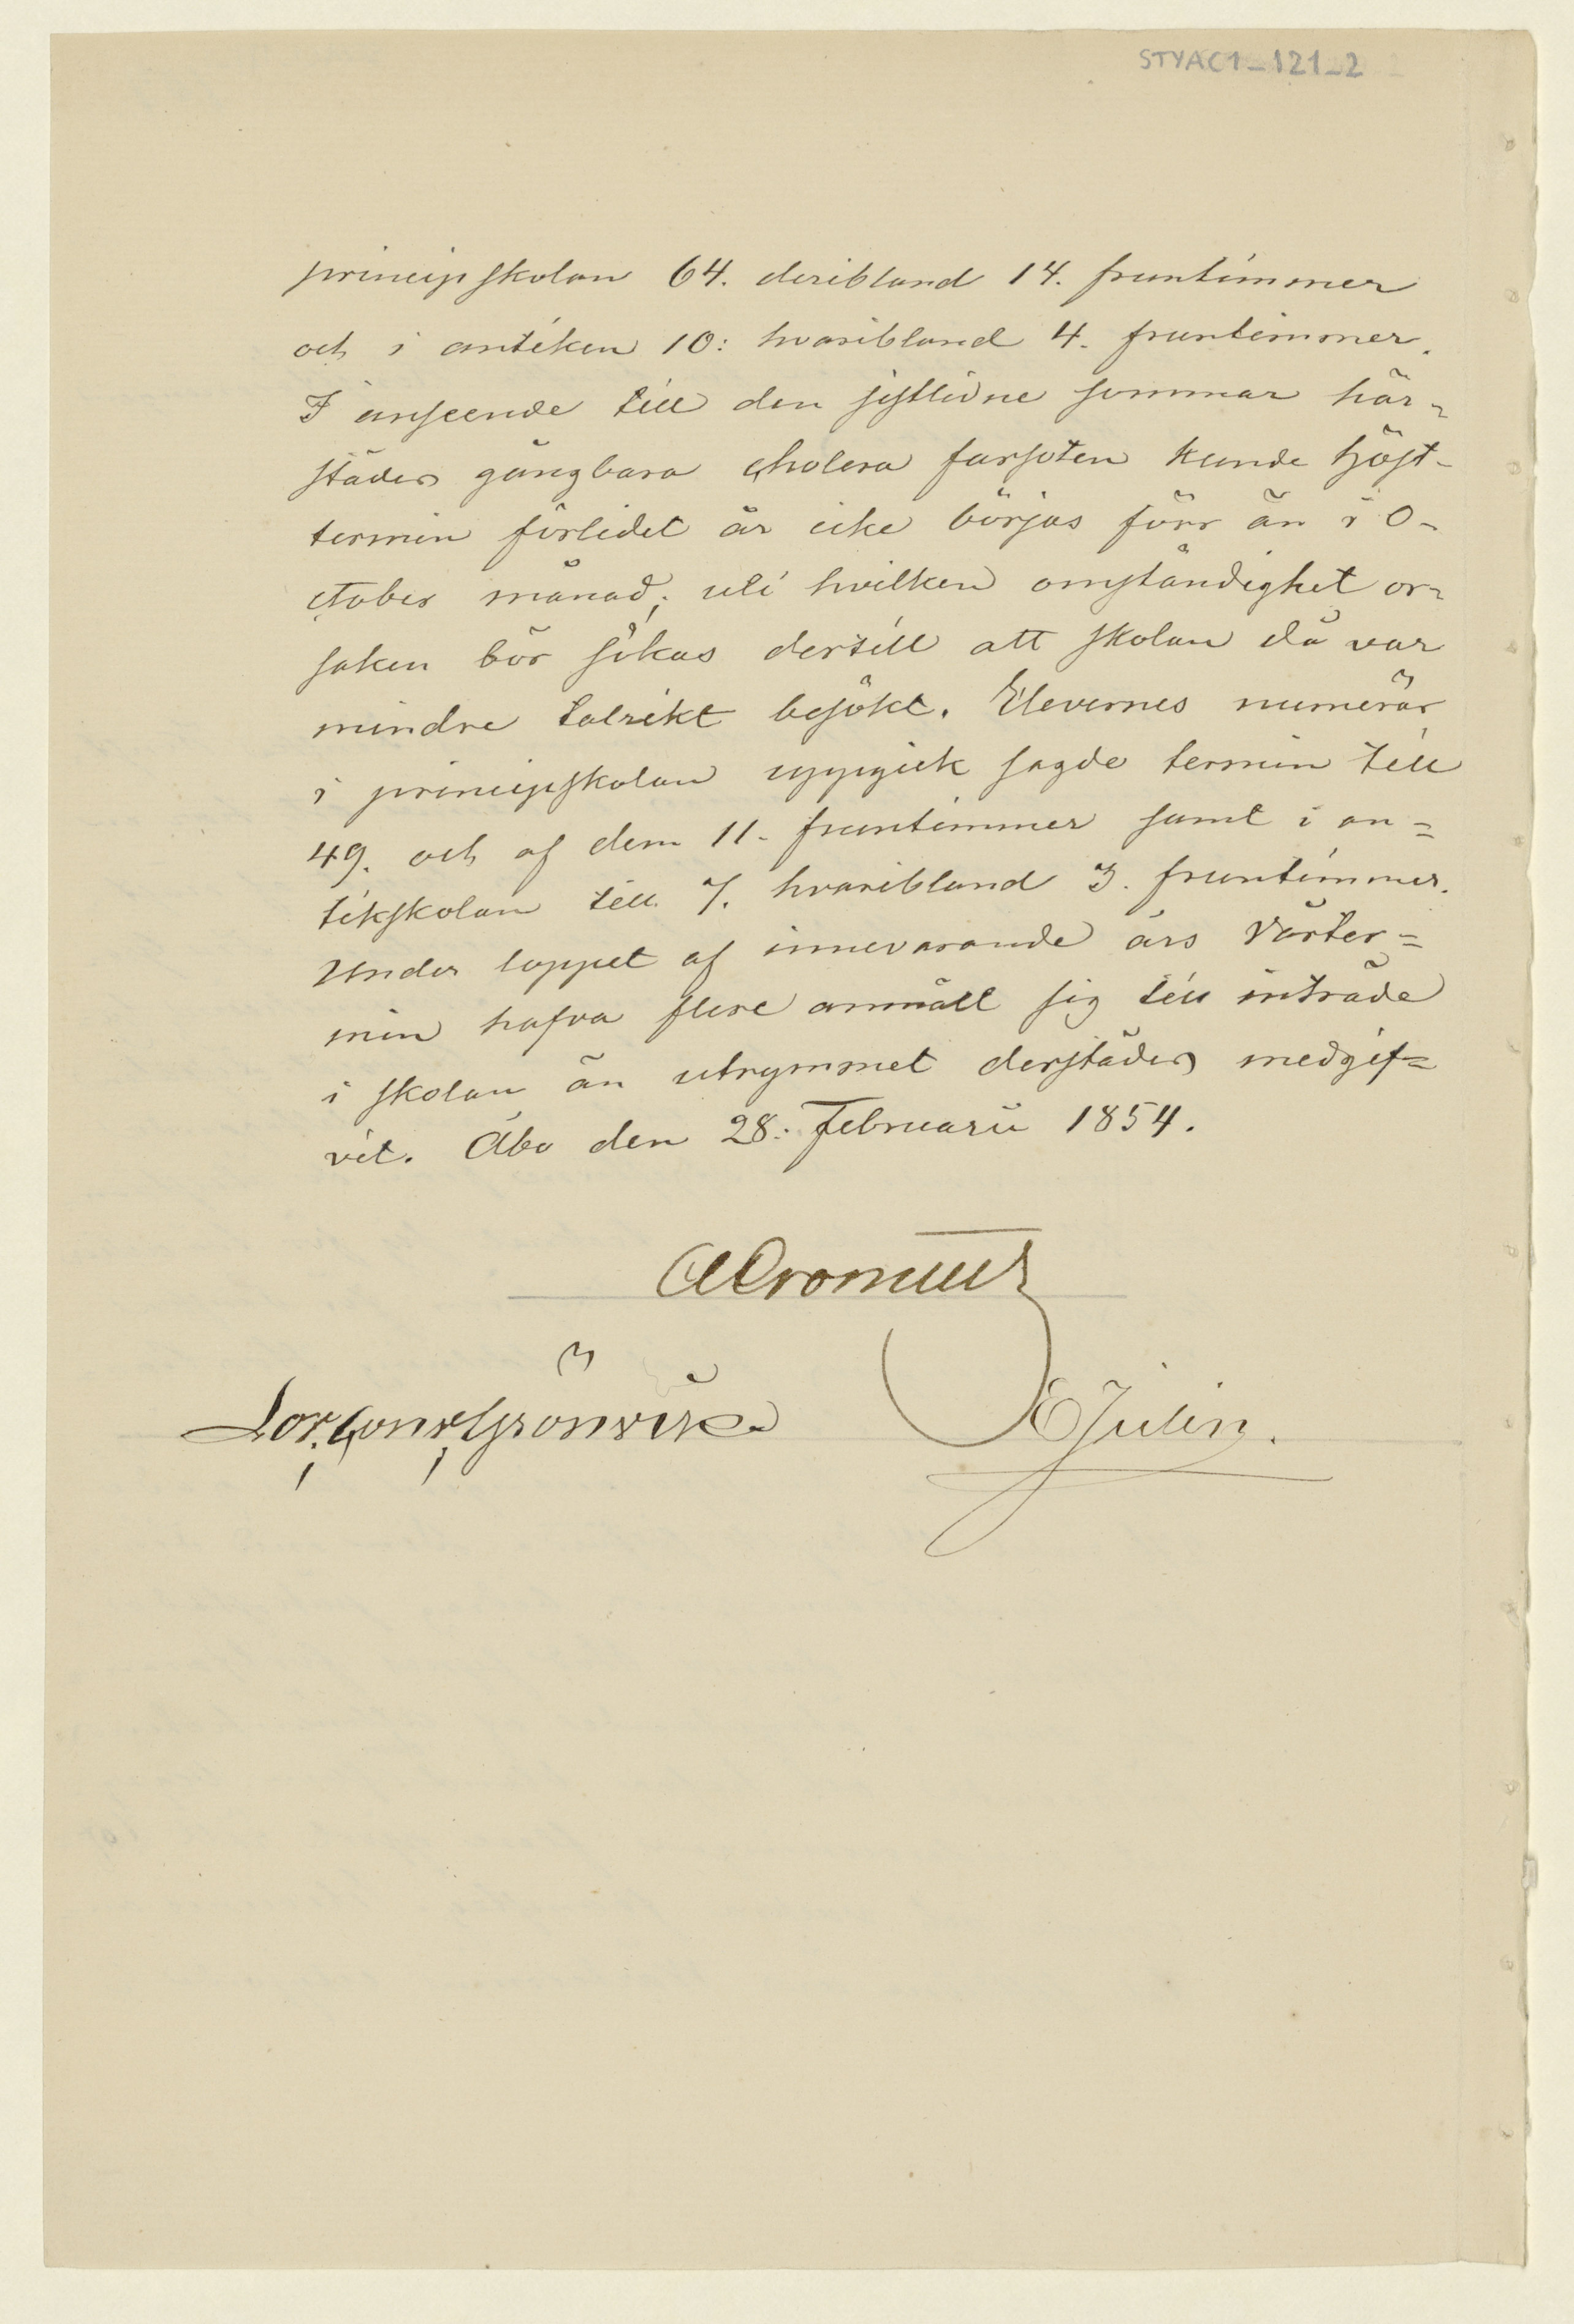 STYAC1_121_2
principskolan 64. deribland 14. fruntimmer
och i antiken 10: hvaribland 4. fruntimmer.
I anseende till den sistlidne sommar här=
städes gångbara cholera farsoten kunde höst-
termin förlidet år icke börjas förr än i O-
ctober månad; uti hvilken omständighet or=
saken bör sökas dertill att skolan då var
mindre talrikt besökt. Elevernes numerär
i principskolan uppgick sagde termin till
49. och af dem 11. fruntimmer samt i an=
tikskolan till 7. hvaribland 3. fruntimmer.
Under loppet af innevarande års Vårter=
min hafva flere anmält sig till inträde
i skolan än utrymmet derstädes medgif=
vit. Åbo den 28: Februarii 1854.
Grönvik
EJulin.